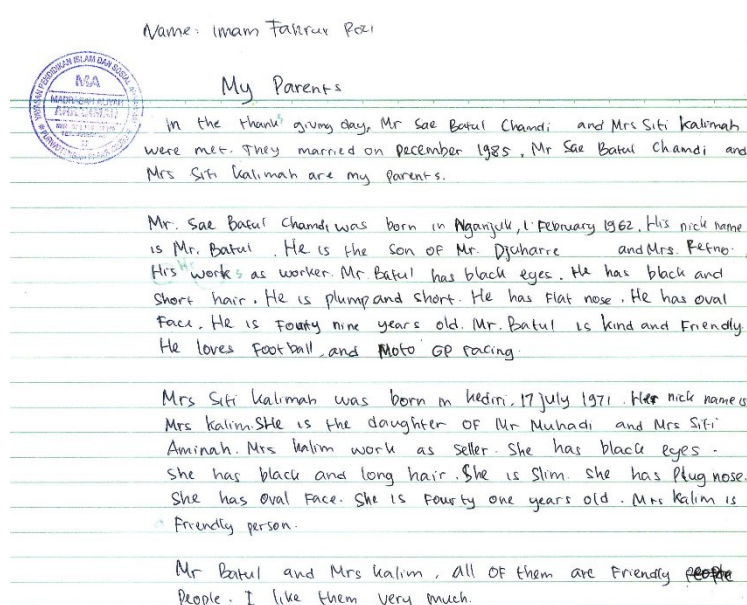 Name: Imam Fahrur Rozi
MA
My Parents
In the thanks giving day, Mr Sae Batul Chamdi and Mrs Siti Kalimah
were met. They married on December 1985, Mr Sae Batul Chamdi and
Mrs Siti Kalimah are my Parents.
Mr. Sae Batul Chamdi was born in Nganjuk, 1 February 1962. His nick name
is Mr. Batul. He is the son of Mr. Djuharre and Mrs. Retno.
His works as worker. Mr. Batul has black eyes. He has black and
short hair. He is plump and short. He has flat nose. He has oval
Face. He is Fourty nine years old. Mr. Batul is kind and Friendly.
He loves Football and Moto GP racing.
Mrs Siti Kalimah was born in kediri, 17 july 1971. Her nick name is
Mrs kalim. SHe is the daughter of Mr Muhadi and Mrs Siti
Aminah. Mrs kalim work as seller. She has black eyes.
She has black and long hair. She is Slim. She has Plug nose.
She has Oval Face. She is Fourty one years old. Mrs Kalim is
Friendly person.
Mr Batul and Mrs kalim, all of them are Friendly people
People. I like them very much.